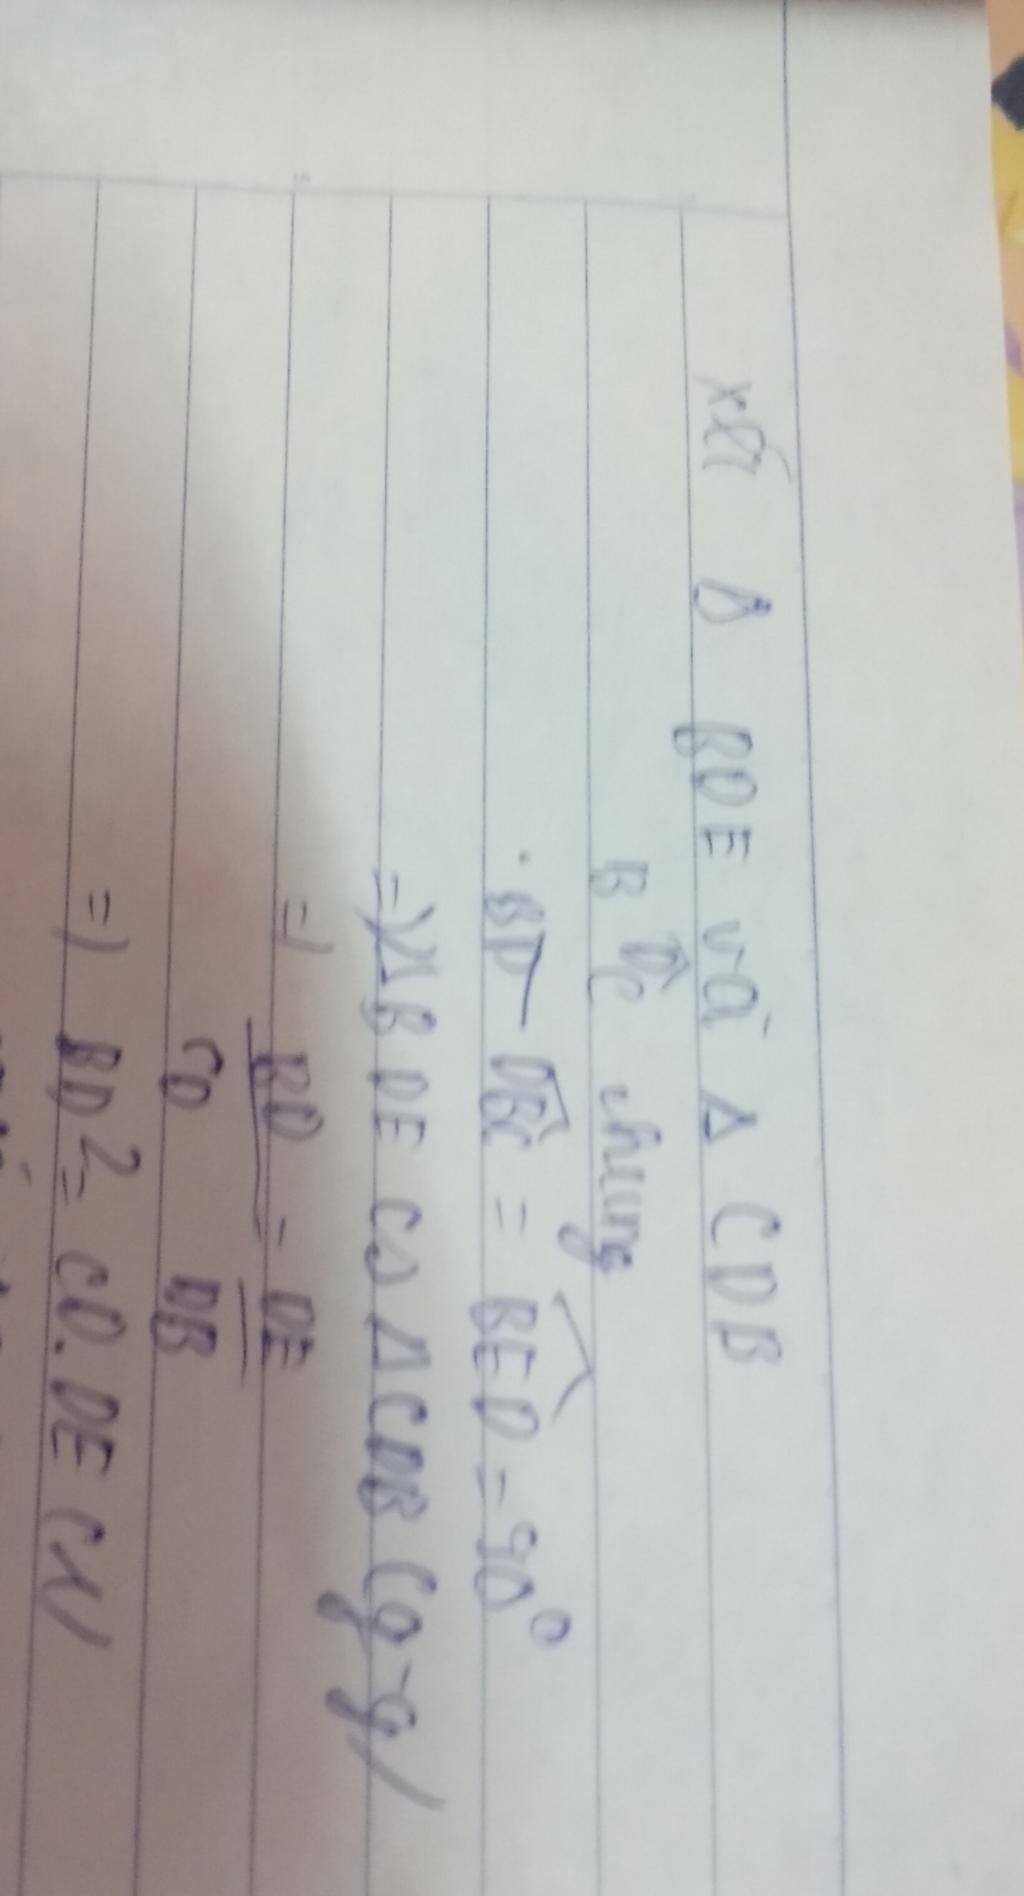 xét Δ BDE và Δ CDB
B D̂C chung
DBC = BED = 90°
=) Δ BDE ∽ Δ CDB (g-g)
=) BD/CD = DE/DB
=) BD² = CD.DE (1)